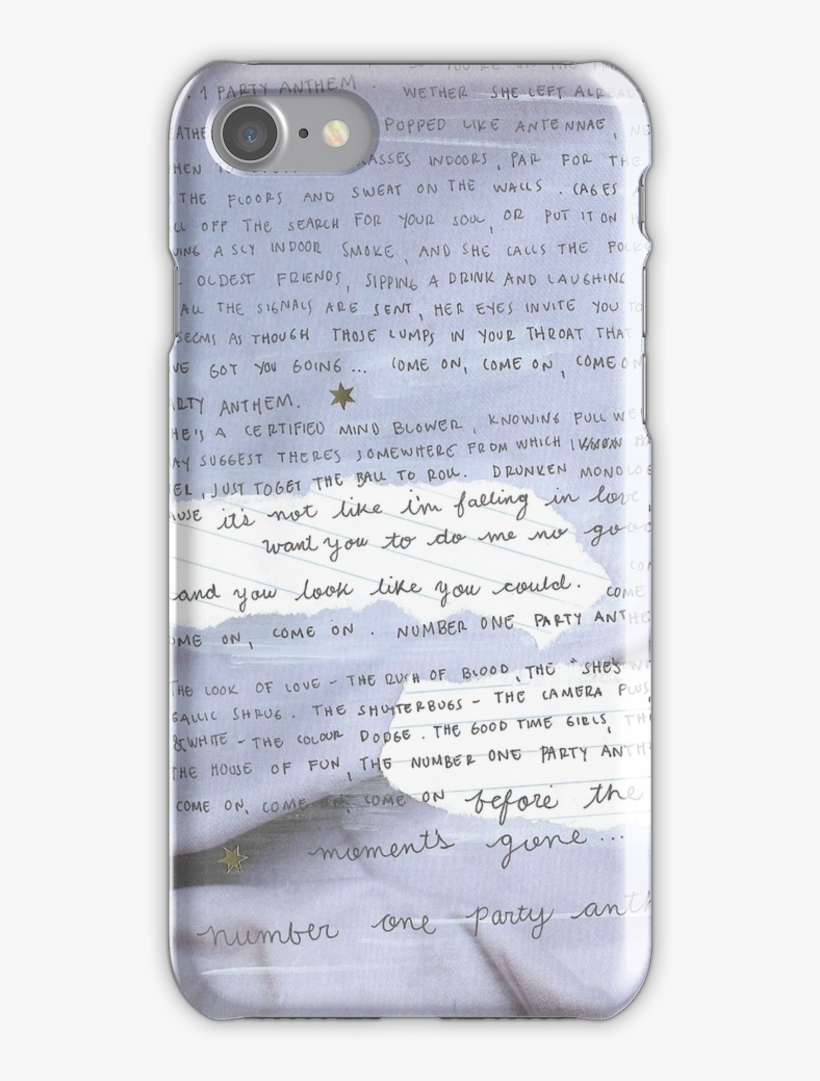 . 1 PARTY ANTHEM . WETHER SHE LEFT ALREAD
ATHE POPPED LIKE ANTENNAE, NO
HEN ASSES INDOORS, PAR FOR THE
THE FLOORS AND SWEAT ON THE WALLS . CAGES
LL OFF THE SEARCH FOR YOUR SOUL, OR PUT IT ON H
VING A SLY INDOOR SMOKE, AND SHE CALLS THE FOLK
OLDEST FRIENDS, SIPPING A DRINK AND LAUGHING
ALL THE SIGNALS ARE SENT, HER EYES INVITE YOU TO
SEEMS AS THOUGH THOSE LUMPS IN YOUR THROAT THAT
VE GOT YOU GOING... COME ON, COME ON, COME ON
ARTY ANTHEM.
HE'S A CERTIFIED MIND BLOWER, KNOWING FULL WE
AY SUGGEST THERES SOMEWHERE FROM WHICH I KNOW
EL, JUST TO GET THE BALL TO ROLL. DRUNKEN MONOLOG
AUSE it's not like i'm falling in love
want you to do me no good
and you look like you could. COME
OME ON, COME ON . NUMBER ONE PARTY ANTHE
THE LOOK OF LOVE - THE RUSH OF BLOOD, THE "SHE'S WI
GALLIC SHRUG . THE SHUTTERBUGS - THE CAMERA PLUS,
&WHITE - THE COLOUR DODGE . THE GOOD TIME GIRLS, TH
THE HOUSE OF FUN, THE NUMBER ONE PARTY ANTH
COME ON, COME ON, COME ON before the
moments gone...
number one party anth